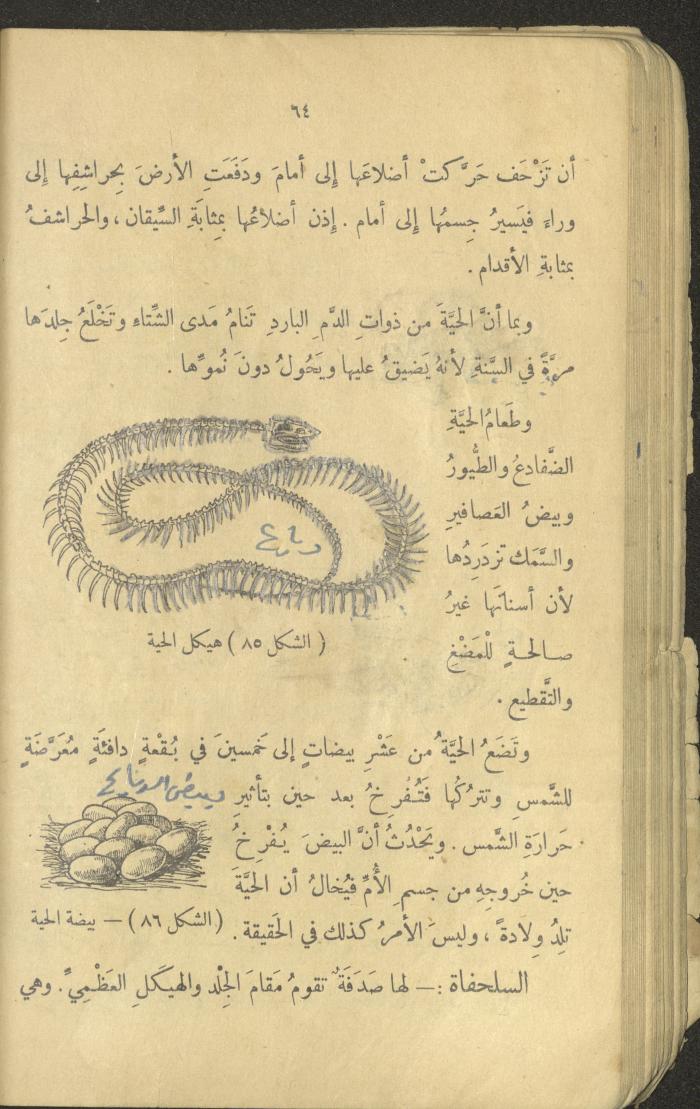 ٦٤
أن تَزْحَف حَرَّكتْ أضلاعَها إِلى أمامَ ودَفَعَتِ الأرضَ بِحراشِفِها إِلى
وراءَ فيَسيرُ جِسمُها إِلى أمام . إِذن أضلاعُها بِمثابَةِ السِّيقان ، والحراشفُ
بمثابةِ الأقدام .
وبما أنَّ الحيَّةَ من ذواتِ الدَّمِ الباردِ تَنامُ مَدى الشِّتاءِ وتَخْلَعُ جِلدَها
مرَّةً في السَّنةِ لأنهُ يَضيقُ عليها ويَحُولُ دونَ نُموِّها .
وطَعامُ الحيَّةِ
الضَّفادعُ والطُّيورُ
وبيضُ العَصافيرِ
والسَّمَك تزدَرِدُها
لأن أسنانَها غيرُ
صالحةٍ لْلمَضْغِ
والتَّقطيع .
( الشكل ٨٥ ) هيكل الحية
وتَضَعُ الحيَّةُ من عَشْرِ بيضاتٍ إلى خَمسينَ في بُقْعةٍ دافئَةٍ مُعَرَّضَةٍ
للشَّمسِ وتترُكُها فَتُفْرِخُ بعد حين بتأثيرِ
حَرارَةِ الشَّمس . ويَحْدُثُ أنَّ البيضَ يُفْرِخُ
حين خُروجِهِ من جسمِ الأُمِّ فيُخالُ أن الحيَّةَ
تلِدُ وِلادةً ، وليسَ الأمرُ كذلك في الحَقيقة .
(الشكل ٨٦) — بيضة الحية
السلحفاة :— لها صَدَفَةٌ تقومُ مَقامَ الجِلْد والهيكَلِ العَظْمِيِّ . وهي